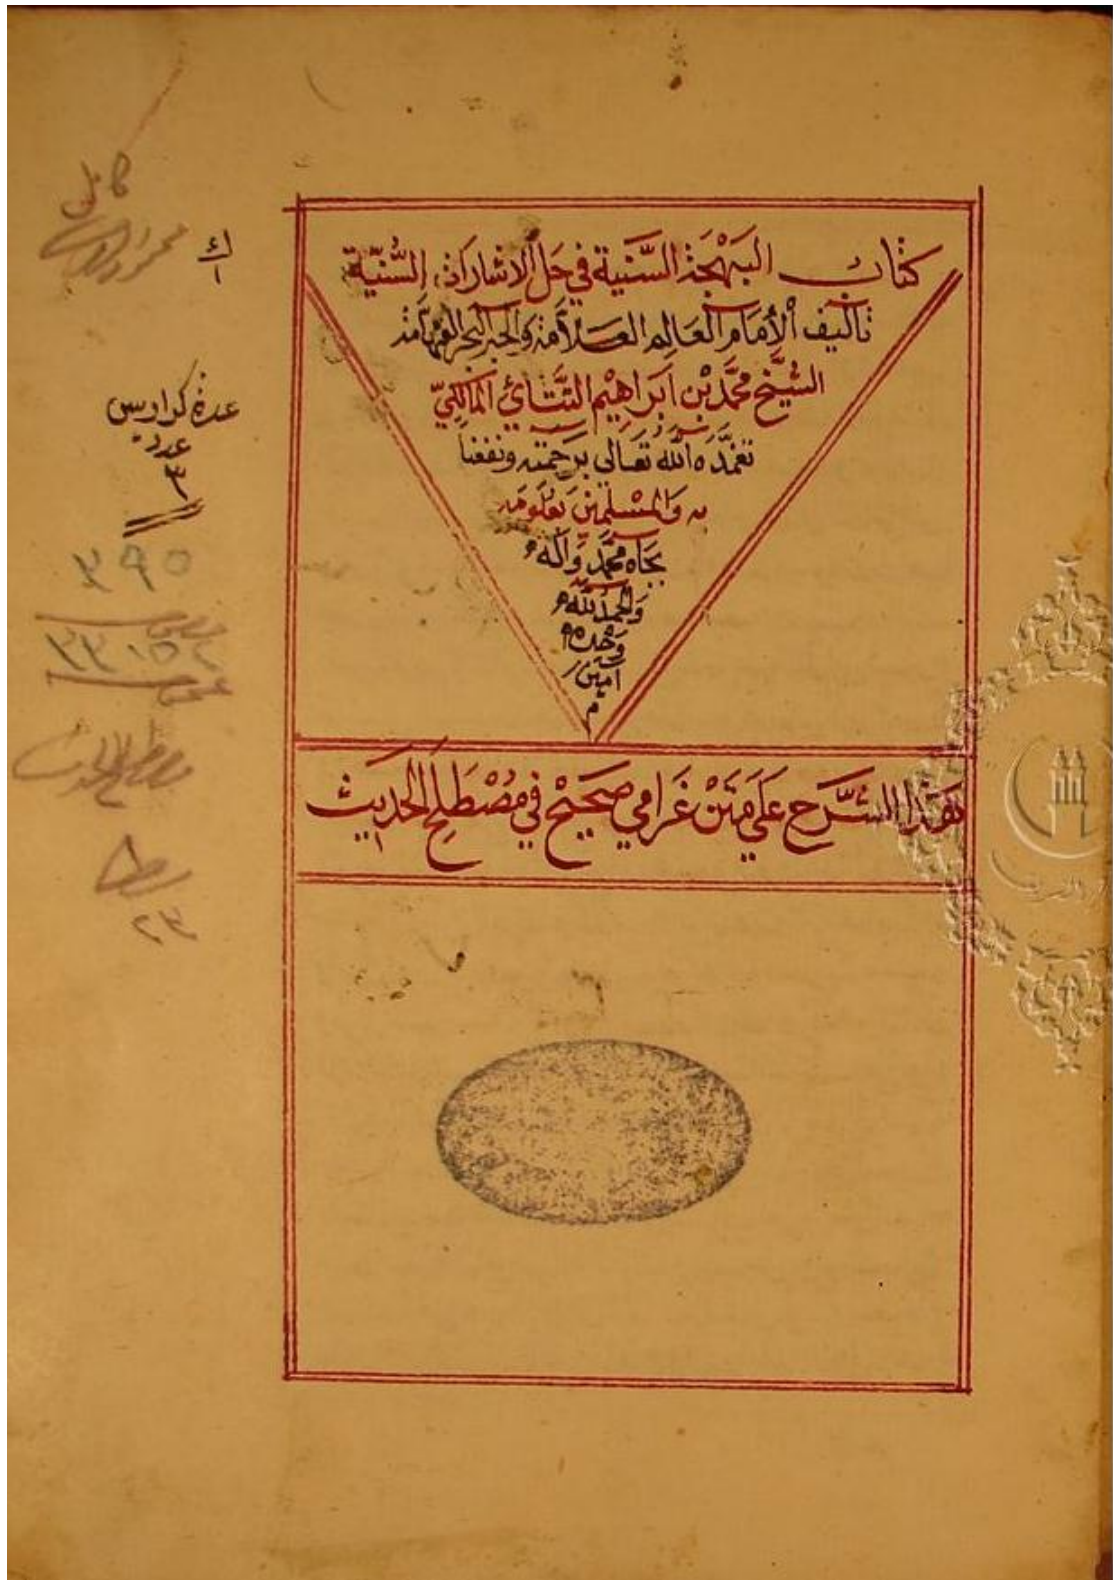 كتاب البَهْجَة السَّنية في حَل الاشارات السُّنيّة
تأليف الأمَام العَالِم العَلاَّمة والحبر البحر الفهامة
الشيخ محمَّد بْن ابرَاهيْم التَّتَائي المَالكيّ
تغمَّدَه الله تعَالى برَحمته ونفعنا
به وَالمسْلمين بعُلومه
بجَاه محمَّد وَآله
وَالحمد لله
وَحْده
آمين
م
هَذا الشَّرَح عَلَى مَتن غَرامي صَحيْح في مُصْطَلح الحديْث
ك
١
عدة كراريس
عدد
٣
٣٩٥
٣٣٠٥٢
مصطلح الحديث
٢٣